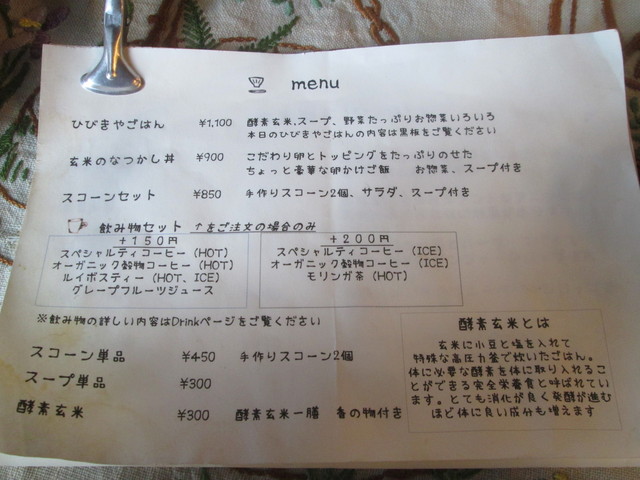 menu
ひびきやごはん ¥1,100 酵素玄米、スープ、野菜たっぷりお惣菜いろいろ
本日のひびきやごはんの内容は黒板をご覧ください
玄米のなつかし丼 ¥900 こだわり卵とトッピングをたっぷりのせた
ちょっと豪華な卵かけご飯 お惣菜、スープ付き
スコーンセット ¥850 手作りスコーン2個、サラダ、スープ付き
飲み物セット ↑をご注文の場合のみ
+150円
スペシャルティコーヒー(HOT)
オーガニック穀物コーヒー(HOT)
ルイボスティー(HOT、ICE)
グレープフルーツジュース
+200円
スペシャルティコーヒー(ICE)
オーガニック穀物コーヒー(ICE)
モリンガ茶(HOT)
※飲み物の詳しい内容はDrinkページをご覧ください
スコーン単品 ¥450 手作りスコーン2個
スープ単品 ¥300
酵素玄米 ¥300 酵素玄米一膳 香の物付き
酵素玄米とは
玄米に小豆と塩を入れて
特殊な高圧力釜で炊いたごはん。
体に必要な酵素を体に取り入れるこ
とができる完全栄養食と呼ばれてい
ます。とても消化が良く発酵が進む
ほど体に良い成分も増えます